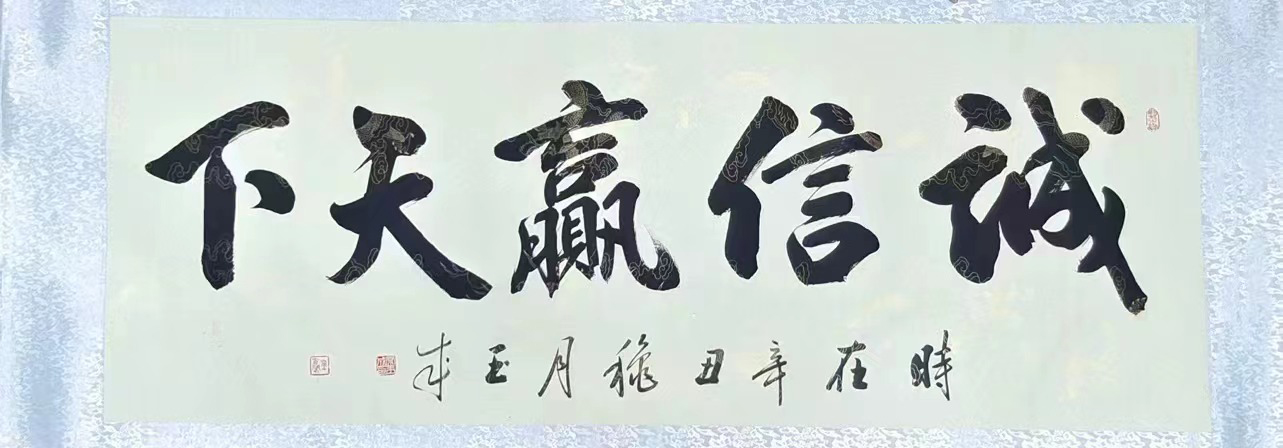 誠信贏天下
時在辛丑穐月玉成